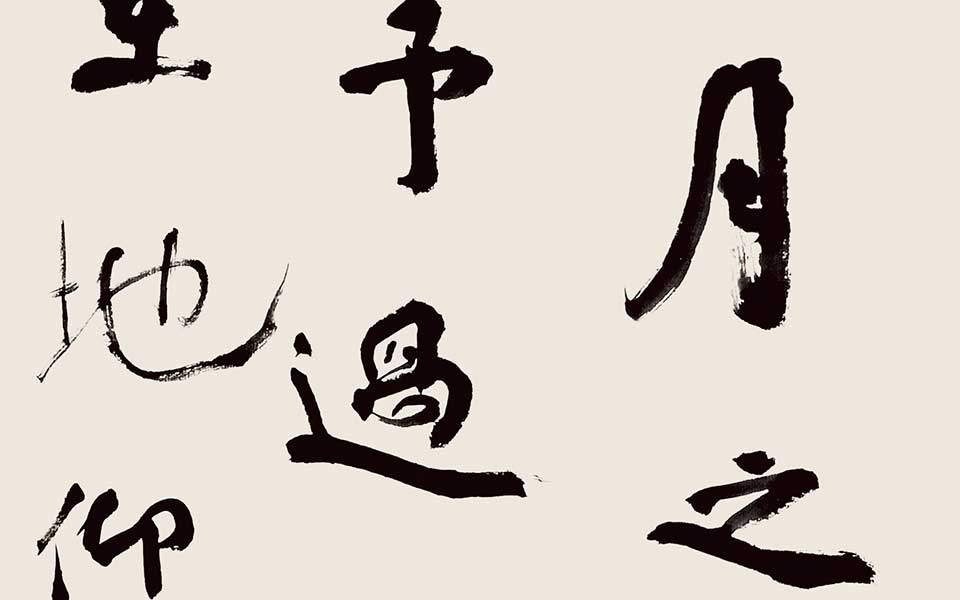 月之
予過
地仰